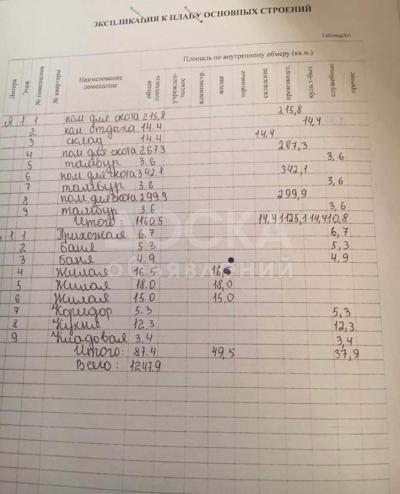 ЭКСПЛИКАЦИЯ К ПЛАНУ ОСНОВНЫХ СТРОЕНИЙ
Таблица№1
Площадь по внутреннему обмеру (кв.м.)
Литера Этаж № помещения № квартиры Наименование помещение общая площадь учрежденческие администр. жилая торговые складские производст. культ-быт. служебные прочие
А 1 1 пом для скота 215,8 215,8
2 ком. отдыха 14.4 14,4
3 склад 14.4 14,4
4 пом для скота 267.3 267,3
5 тамбур 3.6 3,6
6 пом. для скота 342.1 342,1
7 тамбур 3.6 3,6
8 пом. для скота 299.9 299,9
9 тамбур 3.6 3,6
Итого 1160.5 14,4 1125,1 14,4 10,8
1 1 Прихожая 6.7 6,7
2 баня 5.3 5,3
3 баня 4.9 4,9
4 Жилая 16.5 16,5
5 Жилая 18.0 18,0
6 Жилая 15.0 15,0
7 Коридор 5.3 5,3
8 Кухня 12.3 12,3
9 Кладовая 3,4 3,4
Итого: 87.4 49,5 37,9
Всего: 1247.9
ДОСКА
ОБЪЯВЛЕНИЙ